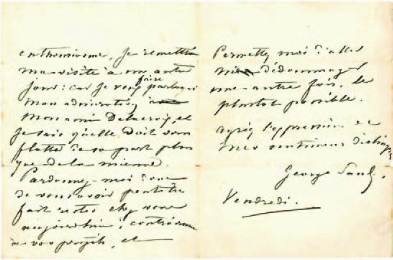 enthousiasme, je remettrai
ma visite à un autre
jour: car je veux faire partager
mon admiration à
mon ami Delacroix, et
je sais qu'elle doit vous
flatter de sa part plus
que de la mienne.
Pardonnez-moi donc
de vous avoir peut être
fait rester chez vous
aujourd'hui, contrairement
à vos projets, et
Permettez moi d'aller
m'en dédommager
une autre fois, le
plutot possible.
Agréez l'expression de
mes sentimens distingués
George Sand.
Vendredi.